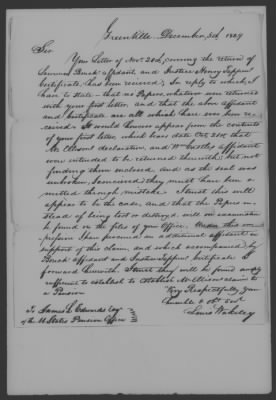 Greenville December 5th 1829
Sir
Your Letter of Novr 20th, covering the return of
Samuel Buck's affidavit and Justice Henry Tappen
Certificate, has been received; In reply to which, I
have to state - that no Papers, whatever were returned
with your first letter, and that the above affidavit
and Certificate are all which have ever been re-
ceived - It would however appear from the contents
of your first letter, which bears date Oct 20th that
Mr declaration, and Wm affidavit
were intended to be returned therewith; but not
finding them enclosed, and as the seal was
unbroken, I concluded they must have been o-
mitted through mistake - I trust this will
appear to be the case, and that the Papers in-
stead of being lost or destroyd, will on examination
be found on the files of your Office. Under this im-
pression I have procured an additional affidavit in
support of this claim, and which accompanied by
Buck's affidavit and Justice Tappen's Certificate I
forward herewith. I trust they will be found
sufficient to establish to establish Mr claim to
a Pension
Very Respectfully your
humble & obt Servt
Lewis Wakeley
To James L Edwards Esqr
of the U States Pension Office